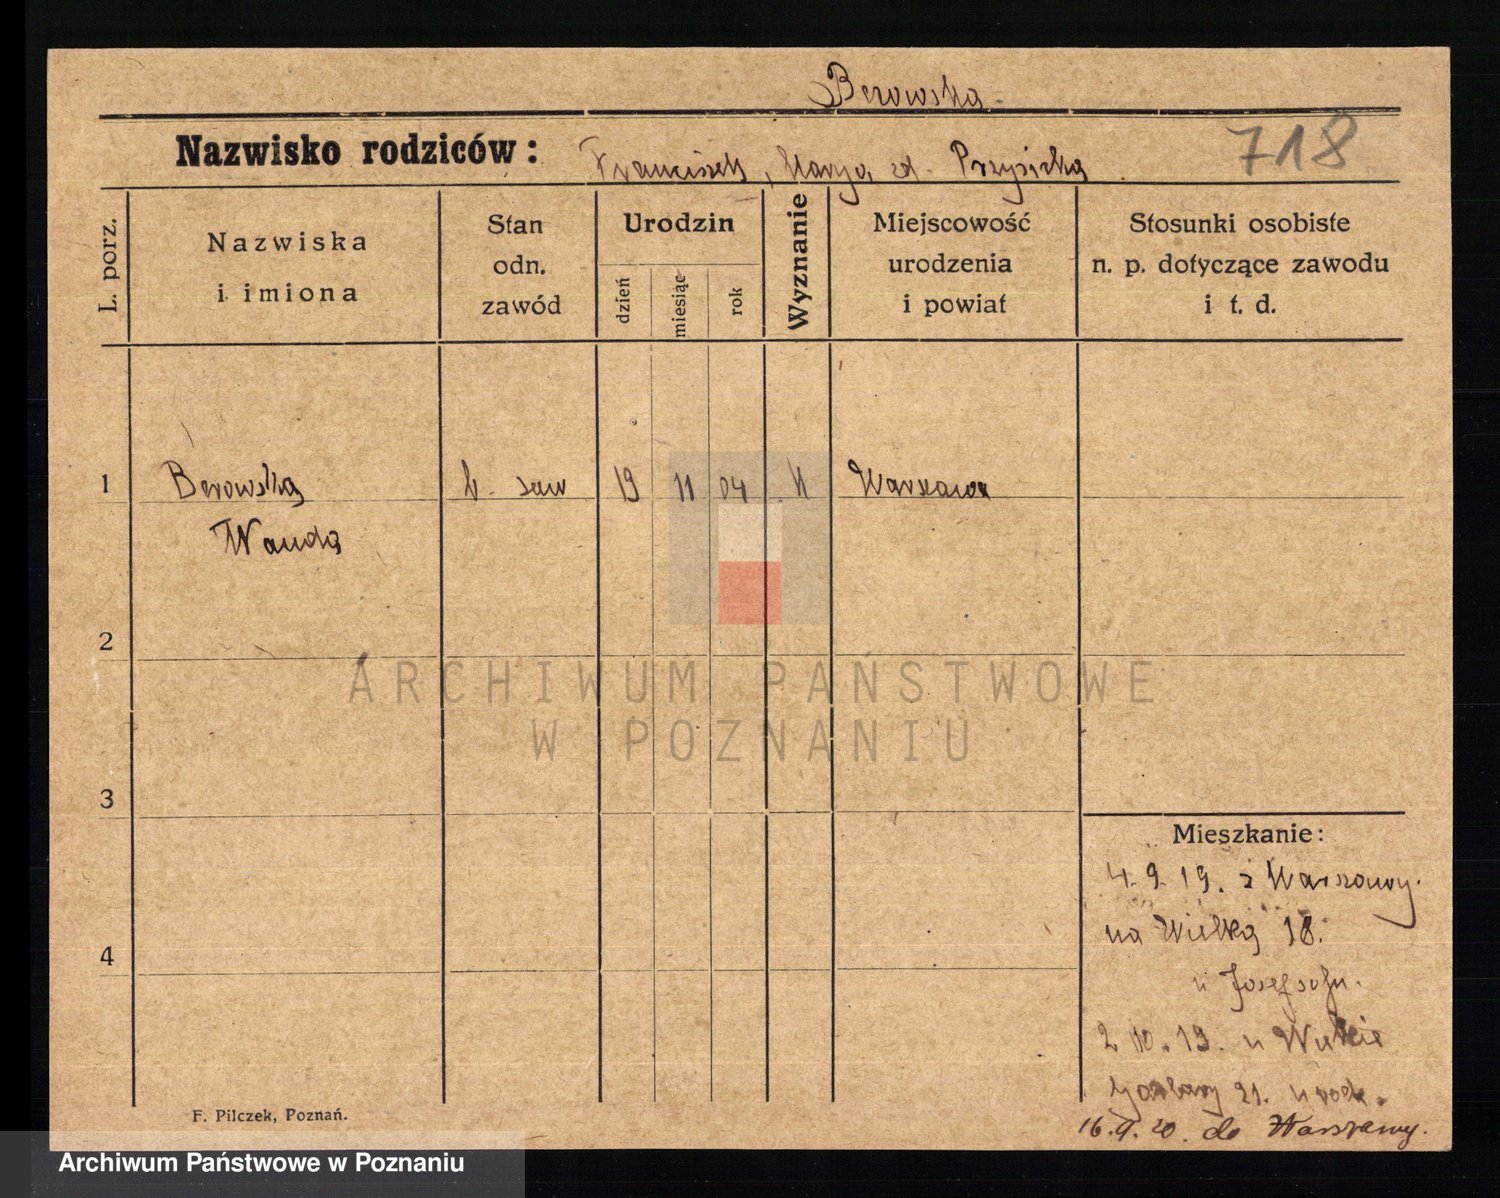 Berowska
Nazwisko rodziców: Franciszek, Marya, zd. Przysicka
718
L. porz.
Nazwiska
i imiona
Stan
odn.
zawód
Urodzin
dzień
miesiąc
rok
Wyznanie
Miejscowość
urodzenia
i powiat
Stosunki osobiste
n. p. dotyczące zawodu
i t. d.
1 Berowska b. zaw 19 11 04 Warszawa
Wanda
2
3
4
Mieszkanie:
4. 9 19. z Warszawy.
na Wielką 18.
u Josefsohn.
2 10. 19. u Wielkie
Garbary 21. u rodz.
16. 9. 20. do Warszawy.
F. Pilczek, Poznań.
ARCHIWUM PAŃSTWOWE
W POZNANIU
Archiwum Państwowe w Poznaniu